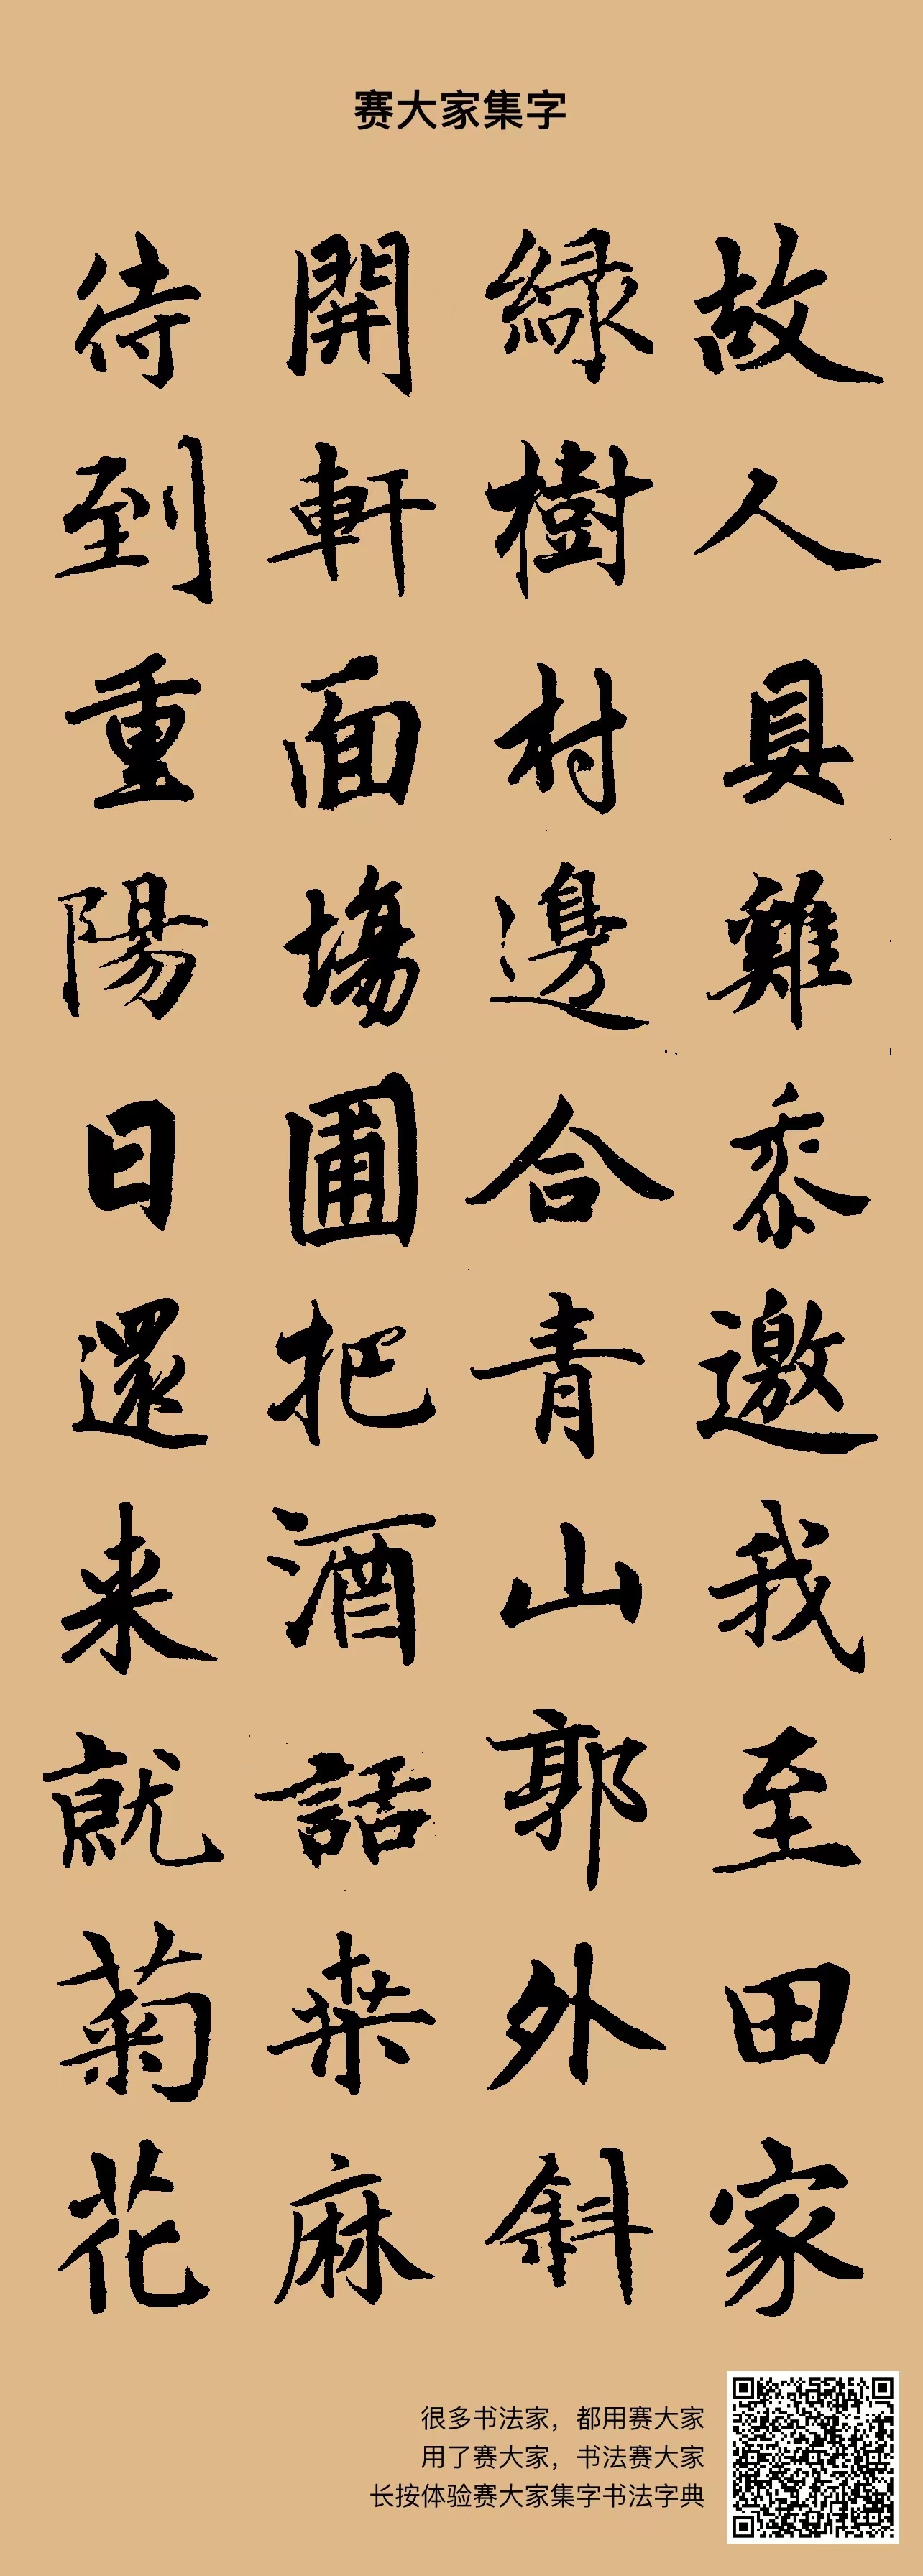 赛大家集字
故人具雞黍邀我至田家
緑樹村邊合青山郭外斜
開軒面場圃把酒話桒麻
待到重陽日還来就菊花
很多书法家，都用赛大家
用了赛大家，书法赛大家
长按体验赛大家集字书法字典